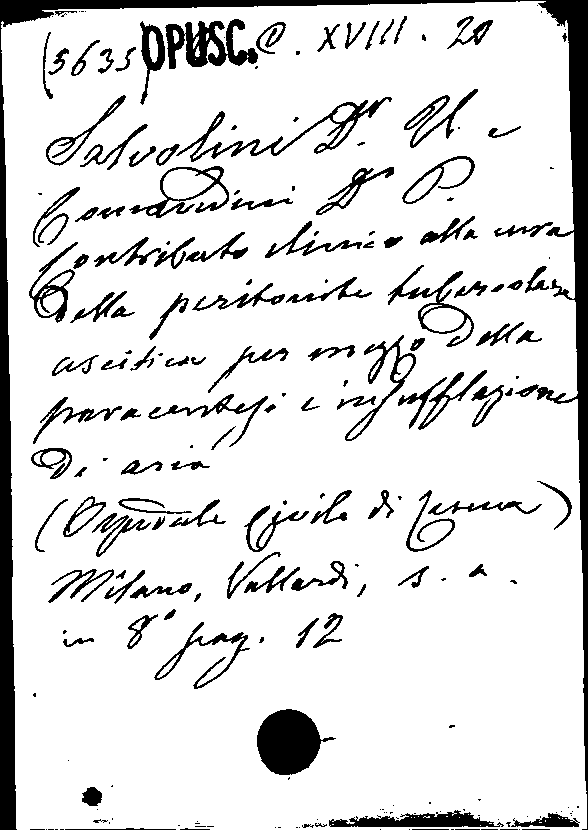 (5635) OPUSC. C. XVIII. 20
Salvolini Dr. U. e
Comandini Dr P.
Contributo clinico alla cura
della peritonite tubercolare
ascitica per mezzo della
paracentesi e insufflazione
di aria
(Ospedale Civile di Cesena)
Milano, Vallardi, s. a.
in 8° pag. 12